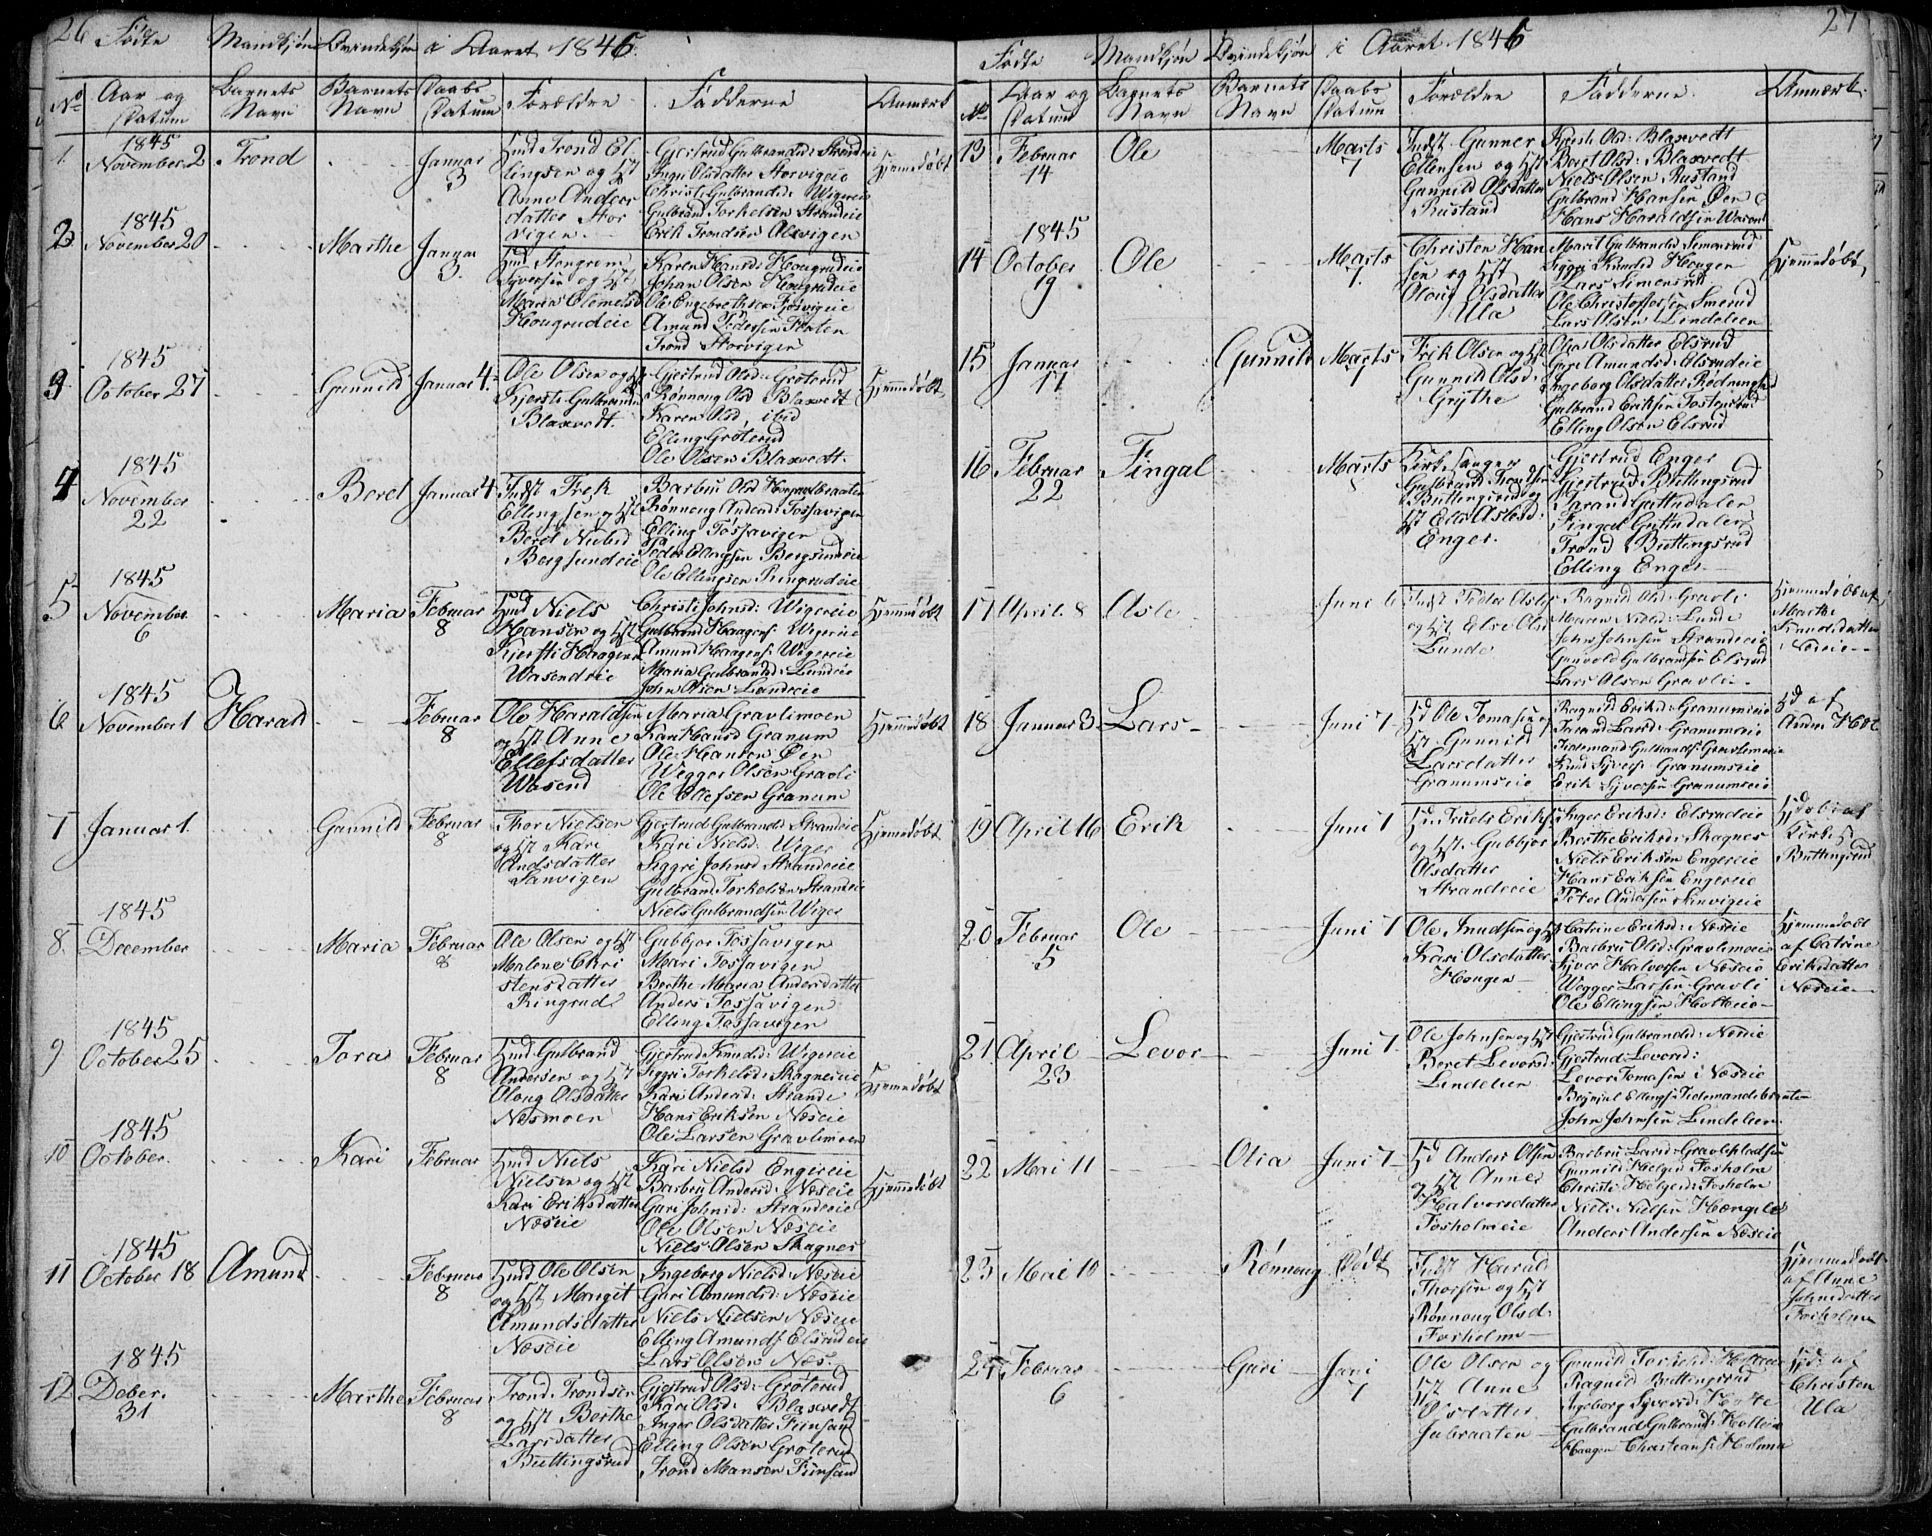 26 Födte Mandkjøn Qvindekjøn i Aaret 1846.
No Aar og Datum Barnets Navn Barnets Navn Daabs Datum Forældre Fadderne Anmærk
1. 1845 November 2 Trond Januar 3 Hjemmedøbt
Hmd Trond El
lingsen og Hst
Anne Anders
datter Stor
vigen
Gjertrud Gulbrandsd: Strandeie
Inger Olsdatter Storvigeie
Christi Gulbrandsd: Wigereie
Gulbrand Torkelsen Strandeie
Erik Trondsen Olsvigen
2. 1845 November 20 Marthe Januar 3.
Syversen og Hst
Maren Olsmelsd
Hougrudeie
Karen Hansd: Hougrudeie
Johan Olsen Hougrudeie
Ole Engebrethsen Tjøsvigeie
Amund Pedersen Floten
Trond Storvigen
3 1845 October 27 Gunnild Januar 4. Hjemmedøbt
Ole Olsen og Hst
Kjersti Gulbrands
Blaxvedt.
Gjertrud Olsd: Grøterud
Rønnoug Olsd Blaxvedt
Karen Olsd, ibid
Elling Grøterud
Ole Olsen Blaxvedt.
4 1845 November 22 Beret Januar 4
Indst Frek
Ellingsen og Hst
Beret Nubsd
Bergsundeie
Barbru Olsd
Rønnoug Andersd: Fossavigen
Elling Fossavigen
Peder Ellingsen Bergsundeie
Ole Ellingsen Ringrudeie
5 1845 November 6 Maria Februar 8 Hjemmedøbt
Hmd Niels
Hansen og Hst
Kjersti Haagens
Wasendeie
Christi Johnsd: Wigereie
Gulbrand Haagens: Wigereie
Amund Haagens: Wigereie
Maria Gulbrandsd: Lundeie
John Olsen Lundeeie
6 1845 November 1 Harald Februar 8 Hjemmedøbt
Ole Haraldsen
og Hst Anne
Ellefsdatter
Wasend
Maria Gravlimoen
Kari Hansd Granum
Ole Hansen Øen
Wegger Olsen Gravli
Ole Ellefsen Granum
7 Januar 1. Gunnild Februar 8 Hjemmedøbt
Thor Nielsen
og Hst Kari
Andsdatter
Sanvigen
Gjertrud Gulbrandsd Strandeie
Kari Nielsd: Wiger
Siggri Johnsd Strandeie
Gulbrand Torkelsen Strandeie
Niels Gulbrandsen Wiger
8. 1845 December Maria Februar 8
Ole Olsen og Hst
Malene Chri
stensdatter
Ringrud
Gubbjør Fossavigen
Mari Fossavigen
Berthe Maria Andersdatter
Anders Fossavigen
Elling Fossavigen
9 1845 October 25 Tora Februar 8 Hjemmedøbt
Hmd Gulbrand
Andersen og Hst
Oloug Olsdatter
Næsmoen
Gjertrud Knudsd: Wigereie
Siggri Torkelsd: Skagneseie
Kari Andersd: Strande
Hans Eriksen Næseie
Ole Larsen Gravlimoen
10 1845 October. Kari Februar Hjemmedøbt
Hmd Niels
Nielsen og Hst
Kari Eriksdatter
Næseie
Kari Nielsd Engereie
Barbru Andersd: Næseie
Guri Johnsd: Strandeeie
Ole Olsen Næseie
Niels Olsen Skagnes
11 1845 October 18 Amund Februar 8
Hmd Ole Olsen
og Hst Margit
Amundsdatter
Næseie
Ingeborg Nielsd: Næseie
Guri Amundsd: Næseie
Niels Nielsen Næseie
Elling Amunds Elsrudeie
Lars Olsen Næs.
12 1845 Dcber. 31 Marthe Februar 8
Trond Trondsen
og Hst Berthe
Larsdatter
Buttingsrud
Gjertrud Olsd: Grøterud
Kari Olsd: Blaxvedt
Inger Olsdatter Finsand
Elling Olsen Grøterud
Trond Hansen Finsand
27
Födte Mandkjøn Qvindekjøn i Aaret 1846
No Aar og Datum Barnets Navn Barnets Navn Daabs Datum Forældre Fadderne Anmærk.
13 Februar 14 Ole Marts 7
Indst Gunner
Ellensen og Hst
Gunnild Olsdatter
Rustand
Kjersti Olsd: Blaxvedt
Beret Olsd: Blaxvedt
Niels Olsen Rustand
Gulbrand Hansen Øen
Hans Haraldsen Wasend
14 1845 October 19 Ole Marts 7. Hjemmedøbt
Christen Han
sen og Hst
Oloug Olsdatter
Ula
Marit Gulbrandsd Simensrud
Siggri Knudsd Hougen
Lars Simensrud
Ole Christoffersen
Lars Olsen Lindelien
15 Januar 17 Gunnild Marts 7
Erik Olsen og Hst
Gunnild Olsd:
Grythe
Olea Olsdatter Elsrud
Guri Amundsd: Elsrudeie
Ingeborg Olsdatter
Gulbrand Eriksen Tostensrud
Elling Olsen Elsrud
16 Februar 22 Fingal Marts
Kirkesanger
Gulbrand Trondsen
Buttingsrud og
Hst Elli Aslesd:
Enger.
Gjertrud Enger
Gjertrud Buttingsrud
Tarand Guttudalen
Fingal Guttudalen
Trond Buttingsrud
Elling Enger
17 April 8 Asle Juni 6
Indst Peder Asles
og Hst Else Olsd
Lunde
Ragnild Olsd: Gravli
Maren Nielsd: Lunde
John Johnsen Strandeeie
Gunvold Gulbrandsen Elsrud
Lars Olsen Gravlie
Hjemmedøbt af
Marthe
Knudsdatter
Næseie
18 Januar 3 Lars Juni 7
Hd Ole Tomasen og
Hst Gunnild
Larsdatter
Granumseie
Ragnild Eriksd: Granumseie
Tarand Larsd: Granumseie
Tidemand Gulbrands: Gravlimoeie
Knud Syvers: Granumseie
Erik Syversen Granumseie
Hd af
19 April 16 Erik Juni 7
Hd. Truels Eriks
og Hst. Gubbjør
Olsdatter
Strandeeie
Inger Eriksd: Elsrudeie
Berthe Eriksd: Skagnes
Niels Eriksen Engereie
Hans Eriksen Engereie
Peter Andersen Sanvigeie
Kirkes
Buttingsrud
20 Februar 5 Ole Juni 7
Ole Knudsen og Hst
Kari Olsdatter
Hougen
Catrine Eriksd: Næseie
Barbru Olsd: Gravlimoeie
Syver Halvorsen Næseie
Wegger Larsen Gravli
Ole Ellingsen Holteeie
Hjemmedøbt
af Catrine
Eriksdatter
Næseie
21. April 23 Levor Juni 7.
Ole Johnsen og Hst
Beret Levorsd:
Lindelien
Gjertrud Gulbrandsd: Næseie
Gjertrud Levorsd:
Levor Tomasen i Næseie
Bojniul Ellings Tidemandsbraaten
John Johnsen Lindelien
22 Mai 11 Olia Juni 7
Hd Anders Olsen
og Hst Anne
Halvorsdatter
Foxholmeie
Barbru Larsd:
Gunnild Helgesd: Foxholm
Christi Helgesd: Foxholm
Niels Nielsen
Anders Andersen Næseie
23 Mai 10 Rønnoug Död
Indst Harald
Thorsen og Hst
Rønnoug Olsd:
Foxholm
Hjemmedøbt
af Anne
Johnsdatter
Foxholm
24 Februar 6 Guri Juni 7
Ole Olsen og
Hst Anne
Olsdatter
Ragnild Buttingsrud
Ingeborg Syversd:
Gulbrand Gulbrands: Holteeie
Haagen Christians: Holmen
Hjd: af
Christen
Ula